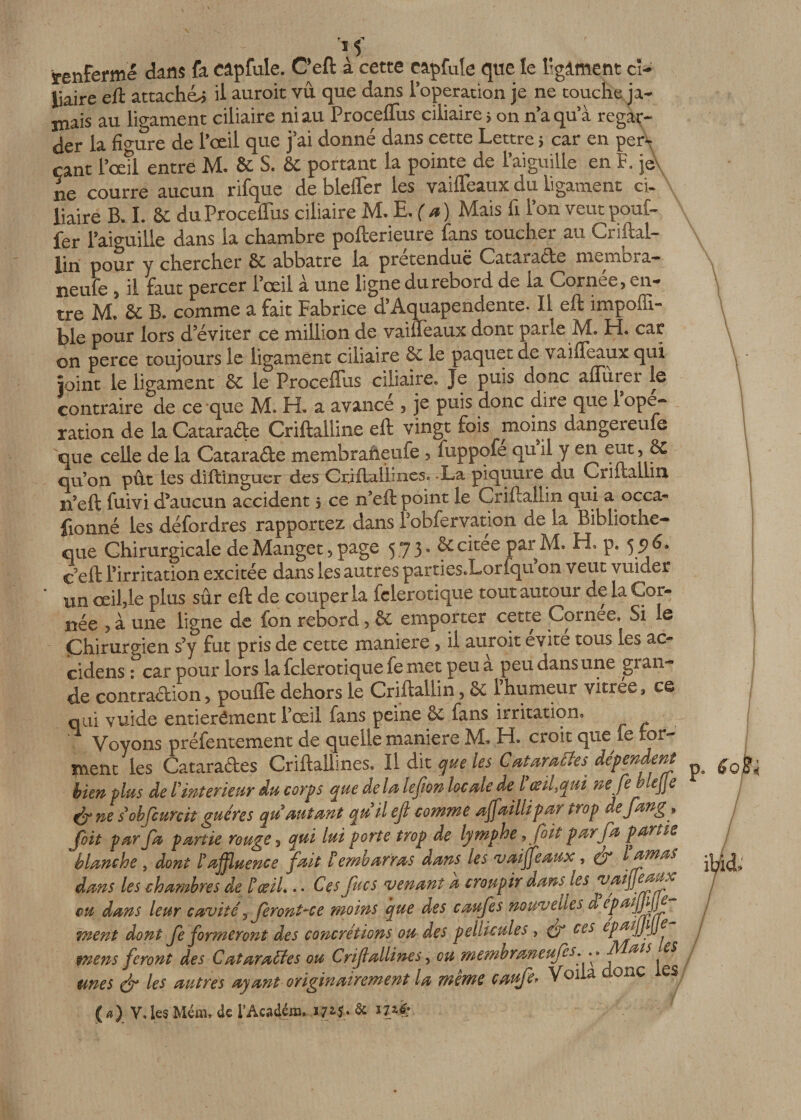 15
renfermé dans fa capfule. C'eft à cette capfule que le ligament ci-
liaire eft attaché; il auroit vû que dans l'operation je ne touche ja-
mais au ligament ciliaire ni au Proceffus ciliaire; on n'a qu'à regar-
der la figure de l'œil que j'ai donné dans cette Lettre; car en per-
çant l'œil entre M. & S. & portant la pointe de l'aiguille en F. je
ne courre aucun rifque de bleffer les vaiffeaux du ligament ci-
liaire B. I. & du Proceffus ciliaire M. E. (a) Mais fi l'on veut pouf-
fer l'aiguille dans la chambre pofterieure fans toucher au Criftal-
lin pour y chercher & abbatre la prétenduë Cataracte membra-
neufe, il faut percer l'œil à une ligne du rebord de la Cornée, en-
tre M. & B. comme a fait Fabrice d'Aquapendente. Il eft impoffi-
ble pour lors d'éviter ce million de vaiffeaux dont parle M. H. car
on perce toujours le ligament ciliaire & le paquet de vaiffeaux qui
joint le ligament & le Proceffus ciliaire. Je puis donc affurer le
contraire de ce que M. H. a avancé, je puis donc dire que l'opé-
ration de la Cataracte Criftalline eft vingt fois moins dangereufe
que celle de la Cataracte membraneufe, fuppofé qu'il y en eut, &
qu'on pût les diftinguer des Criftallines. La piquure du Criftallin
n'eft fuivi d'aucun accident; ce n'eft point le Criftallin qui a occa-
fionné les défordres rapportez dans l'obfervation de la Bibliothe-
que Chirurgicale de Manget, page 573. & citée par M. H. p. 596.
c'eft l'irritation excitée dans les autres parties. Lorfqu'on veut vuider
un œil, le plus sûr eft de couper la fclerotique tout autour de la Cor-
née, à une ligne de fon rebord, & emporter cette Cornée. Si le
Chirurgien s'y fut pris de cette maniere, il auroit évité tous les ac-
cidens: car pour lors la fclerotique fe met peu à peu dans une gran-
de contraction, pouffe dehors le Criftallin, & l'humeur vitrée, ce
qui vuide entierêment l'œil fans peine & fans irritation.
Voyons préfentement de quelle maniere M. H. croit que fe for-
ment les Cataractes Criftallines. Il dit que les Cataractes dépendent p. 608.
bien plus de l'interieur du corps que de la lefion locale de l'œil, qui ne fe bleffe
& ne s'obfcurcit guéres qu'autant qu'il eft comme affailli par trop de fang,
foit par fa partie rouge, qui lui porte trop de lymphe, foit par fa partie
blanche, dont l'affluence fait l'embarras dans les vaiffeaux, & l'amas ibid.
dans les chambres de l'œil... Ces fucs venant à croupir dans les vaiffeaux
ou dans leur cavité, feront-ce moins que des caufes nouvelles d'épaiffiffe-
ment dont fe formeront des concrétions ou des pellicules, & ces épaiffiffe-
mens feront des Cataractes ou Criftallines, ou membraneufes... Mais les
unes & les autres ayant originairement la même caufe. Voilà donc les
(a) V. les Mém. de l'Académ. 1725. & 1726.